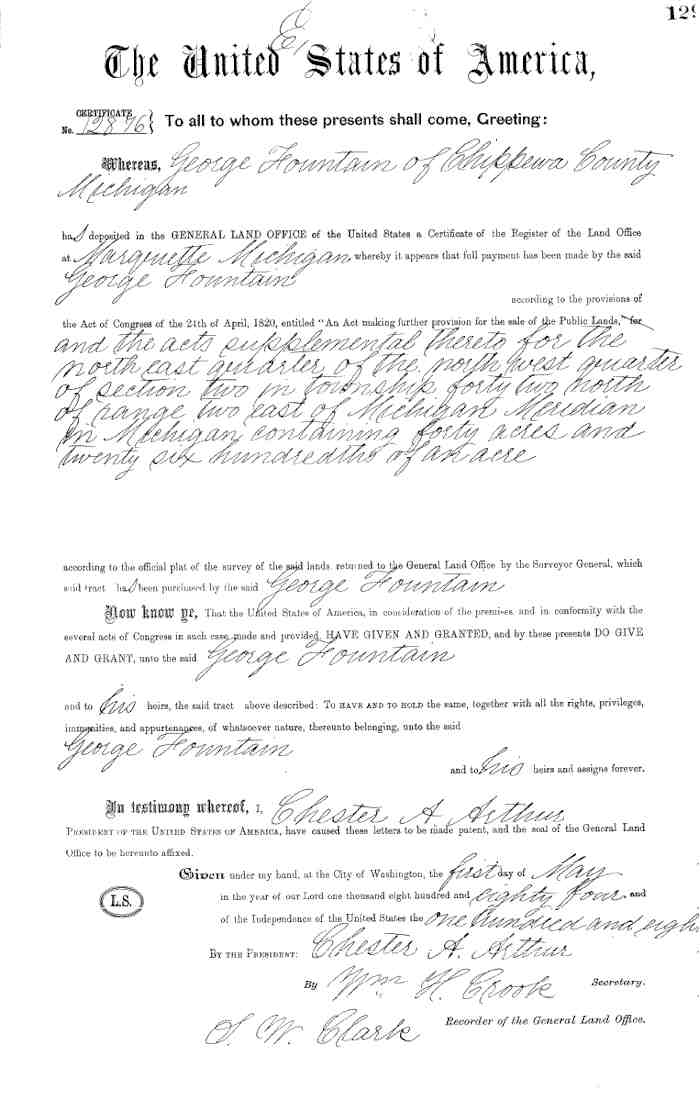 129
E,
The United States of America,
CERTIFICATE
No. 12876 } To all to whom these presents shall come, Greeting:
Whereas, George Fountain of Chippewa County
Michigan
has deposited in the GENERAL LAND OFFICE of the United States a Certificate of the Register of the Land Office
at Marquette Michigan whereby it appears that full payment has been made by the said
George Fountain
according to the provisions of
the Act of Congress of the 24th of April, 1820, entitled "An Act making further provision for the sale of the Public Lands," for
and the acts supplemental thereto for the
north east quarter of the north west quarter
of section two in township forty two north
of range two east of Michigan Meridian
in Michigan containing forty acres and
twenty six hundredths of an acre
according to the official plat of the survey of the said lands, returned to the General Land Office by the Surveyor General, which
said tract has been purchased by the said George Fountain
Now know ye, That the United States of America, in consideration of the premises, and in conformity with the
several acts of Congress in such case made and provided, HAVE GIVEN AND GRANTED, and by these presents DO GIVE
AND GRANT, unto the said George Fountain
and to his heirs, the said tract above described: TO HAVE AND TO HOLD the same, together with all the rights, privileges,
immunities, and appurtenances, of whatsoever nature, thereunto belonging, unto the said
George Fountain
and to his heirs and assigns forever.
In testimony whereof, I, Chester A Arthur
PRESIDENT OF THE UNITED STATES OF AMERICA, have caused these letters to be made patent, and the seal of the General Land
Office to be hereunto affixed.
Given under my hand, at the City of Washington, the first day of May
L.S. in the year of our Lord one thousand eight hundred and eighty four and
of the Independence of the United States the one hundred and eigh
BY THE PRESIDENT: Chester A. Arthur
By Wm H. Crook Secretary.
S. W. Clark Recorder of the General Land Office.